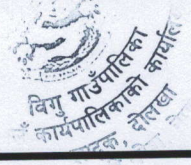 बिगु गाउँपालिका
कार्यपालिकाको कार्यालय
दोलखा